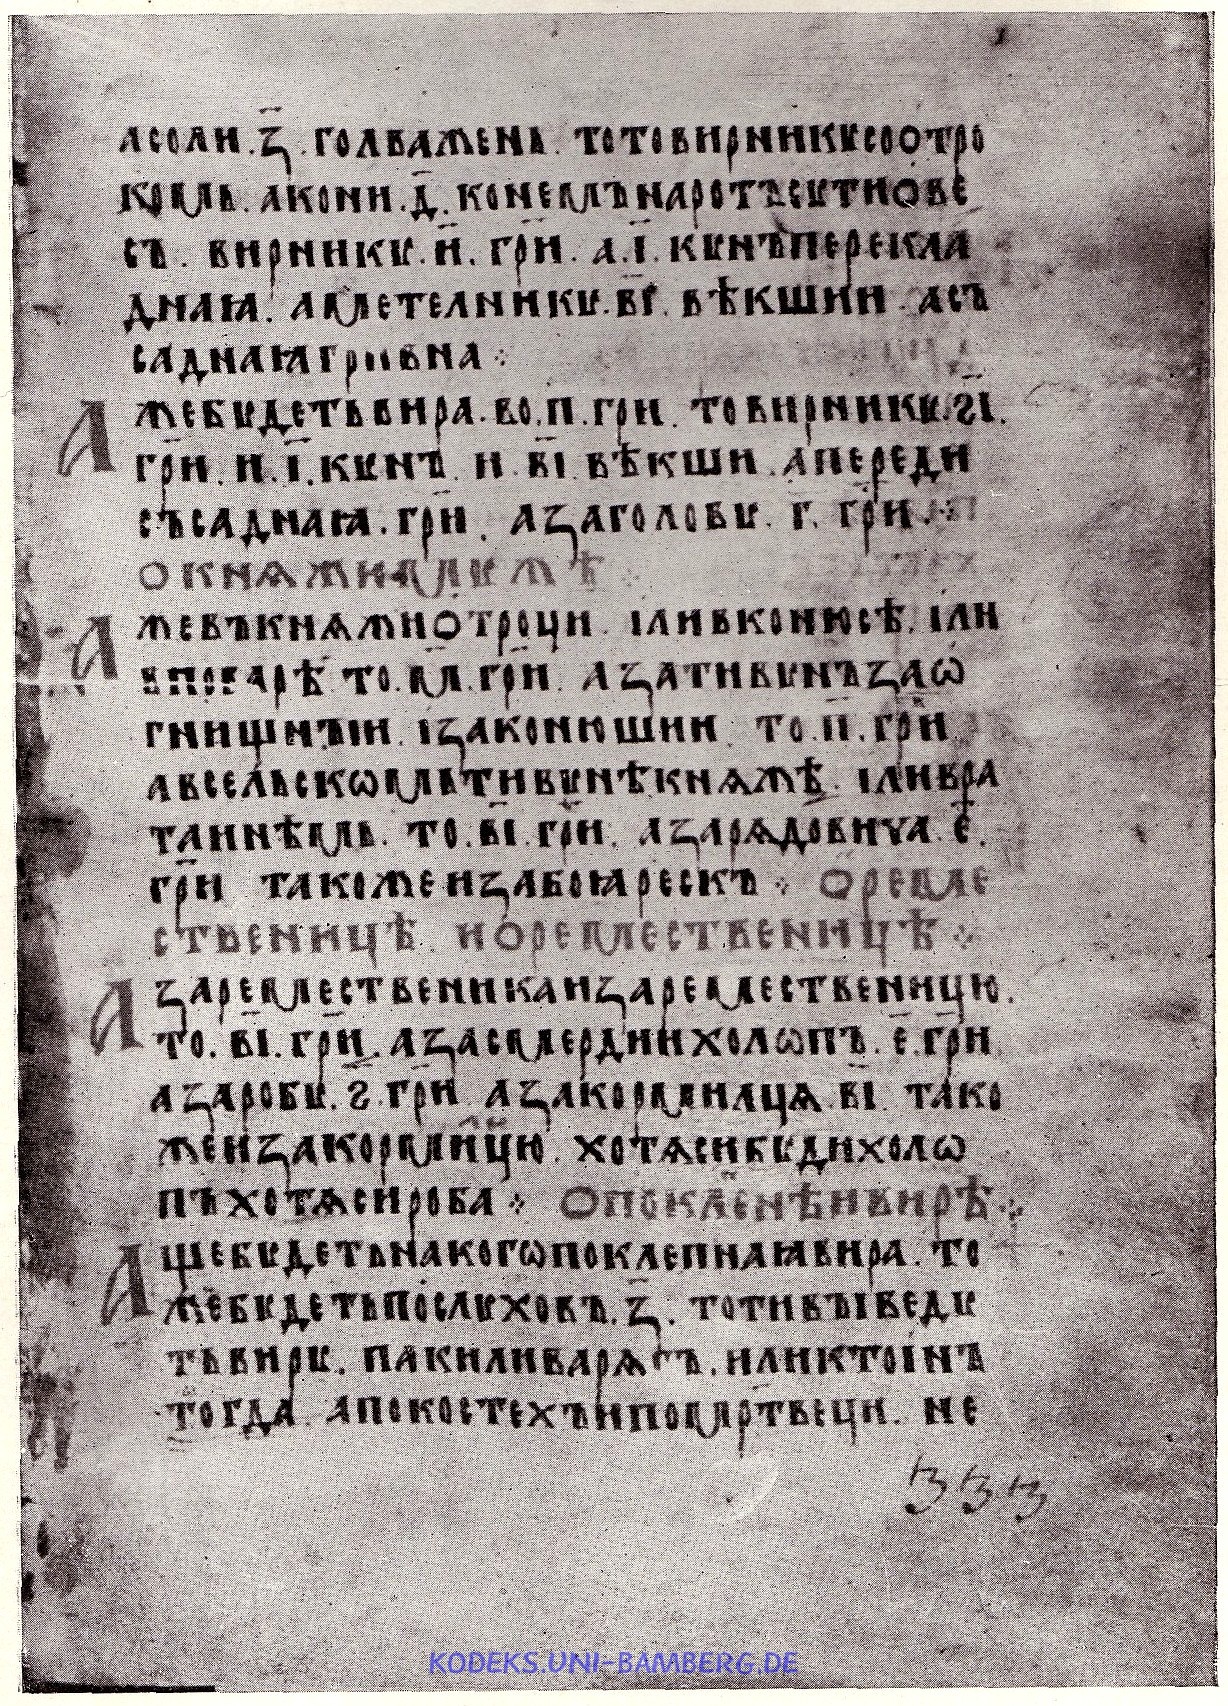 а соли .з҃. голважень. то то вирникꙋ со отро
комь. а кони .д҃. конемъ на ротъ сꙋти ѻвє
съ. вирникꙋ .и҃. гр҃и. а .і҃. кꙋнъ перекла
дная. а метелникꙋ .ві҃. вѣкшии. а съ
садная гривна ⁘
Аже бꙋдеть вира .во .п҃. гр҃и. то вирникꙋ .ѕ҃і.
гр҃и. и .і҃. кꙋнъ. и .ві҃. вѣкши. а переди
съсадная. гр҃и. а за головꙋ .г҃. гр҃и ⁘
О княжи мꙋжѣ ⁘
Аже въ княжи ѻтроци. іли в конюсѣ. іли
в поварѣ то .м҃. гр҃и. а за тивꙋнъ за ѡ
гнищныи. і за конюшии то .п҃. гр҃и
а в сельскѡмь тивꙋнѣ княжѣ. іли в ра
таинѣмь. то .ві҃. гр҃и. а за рядовича .є҃.
гр҃и такоже и за бояреск ъ ⁘ О ремє
ственицѣ и о ремественицѣ ⁘
А за ремественика и за ремественицю.
то .ві҃. гр҃и. а за смердии холѡпъ .є҃. гр҃и
а за робꙋ .ѕ҃. гр҃и. а за кормилця .ві҃. тако
же и за кормилицю. хотя си бꙋди холѡ
пъ хотя си роба ⁘ О поклепнѣи вирѣ ⁘
Аще бꙋдеть на когѡ поклепная вира. то
же бꙋдеть послꙋховъ .з҃. то ти выведꙋ
ть вирꙋ. паки ли варягъ. или кто інъ
тогда. а по костехъ и по мр҃твеци. не
ззз
KODEKS.UNI-BAMBERG.DE